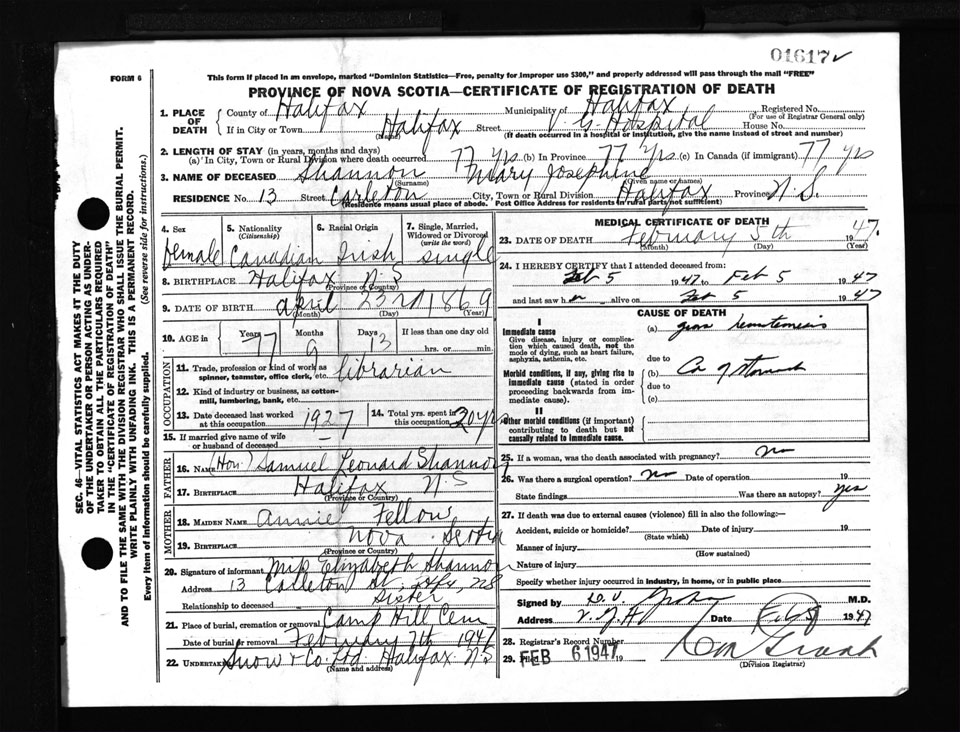 01617
FORM 6
This form if placed in an envelope, marked "Dominion Statistics—Free, penalty for improper use $300," and properly addressed will pass through the mail "FREE"
PROVINCE OF NOVA SCOTIA—CERTIFICATE OF REGISTRATION OF DEATH
1. PLACE OF DEATH County of Halifax Municipality of Halifax Registered No.
(For use of Registrar General only)
If in City or Town Halifax Street V. G. Hospital House No.
(Name) (If death occurred in a hospital or institution, give the name instead of street and number)
2. LENGTH OF STAY (in years, months and days)
(a) In City, Town or Rural Division where death occurred 77 yrs (b) In Province 77 yrs (c) In Canada (if immigrant) 77 yrs
3. NAME OF DECEASED Shannon Mary Josephine
(Surname) (Given name or names)
RESIDENCE No. 13 Street Carleton City, Town or Rural Division Halifax Province N.S.
(Residence means usual place of abode. Post Office Address for residents in rural parts not sufficient)
4. Sex 5. Nationality (Citizenship) 6. Racial Origin 7. Single, Married, Widowed or Divorced (write the word)
Female Canadian Irish single
8. BIRTHPLACE Halifax N.S
(Province or Country)
9. DATE OF BIRTH April 23rd 1869
(Month) (Day) (Year)
10. AGE Years Months Days If less than one day old
77 9 13 hrs. or min.
OCCUPATION
11. Trade, profession or kind of work as spinner, teamster, office clerk, etc. librarian
12. Kind of industry or business, as cotton-mill, lumbering, bank, etc.
13. Date deceased last worked at this occupation 1927 14. Total yrs. spent in this occupation 30 yrs
15. If married give name of wife or husband of deceased —
FATHER
16. NAME (Hon.) Samuel Leonard Shannon
17. BIRTHPLACE Halifax N.S
(Province or Country)
MOTHER
18. MAIDEN NAME Annie Fellows
19. BIRTHPLACE Nova Scotia
(Province or Country)
20. Signature of informant Miss Elizabeth Shannon
Address 13 Carleton St, Hfx, N.S
Relationship to deceased Sister
21. Place of burial, cremation or removal Camp Hill Cem
Date of burial or removal February 7th 1947
22. UNDERTAKER Snow & Co. Ltd. Halifax N.S
(Name and address)
MEDICAL CERTIFICATE OF DEATH
23. DATE OF DEATH February 5th 1947.
(Month) (Day) (Year)
24. I HEREBY CERTIFY that I attended deceased from:
Feb 5 1947 to Feb 5 1947
and last saw her alive on Feb 5 1947
CAUSE OF DEATH
I
Immediate cause (a)
Give disease, injury or complication which caused death, not the mode of dying, such as heart failure, asphyxia, asthenia, etc.
due to
Morbid conditions, if any, giving rise to immediate cause (stated in order proceeding backwards from immediate cause). Ca of stomach
due to
(c)
II
Other morbid conditions (if important) contributing to death but not causally related to immediate cause.
25. If a woman, was the death associated with pregnancy? No
26. Was there a surgical operation? No Date of operation 19
State findings Was there autopsy? yes
27. If death was due to external causes (violence) fill in also the following:—
Accident, suicide or homicide? Date of injury 19
(State which)
Manner of injury
(How sustained)
Nature of injury
Specify whether injury occurred in industry, in home, or in public place
Signed by M.D.
Address V. G. H Date Feb 5 1947
28. Registrar's Record Number
29. Filed FEB 6 1947 19
(Division Registrar)
SEC. 46—VITAL STATISTICS ACT MAKES IT THE DUTY
OF THE UNDERTAKER OR PERSON ACTING AS UNDER-
TAKER TO OBTAIN ALL THE PARTICULARS REQUIRED
IN THE "CERTIFICATE OF REGISTRATION OF DEATH"
AND TO FILE THE SAME WITH THE DIVISION REGISTRAR WHO SHALL ISSUE THE BURIAL PERMIT.
WRITE PLAINLY WITH UNFADING INK. THIS IS A PERMANENT RECORD.
Every item of Information should be carefully supplied. (See reverse side for instructions.)